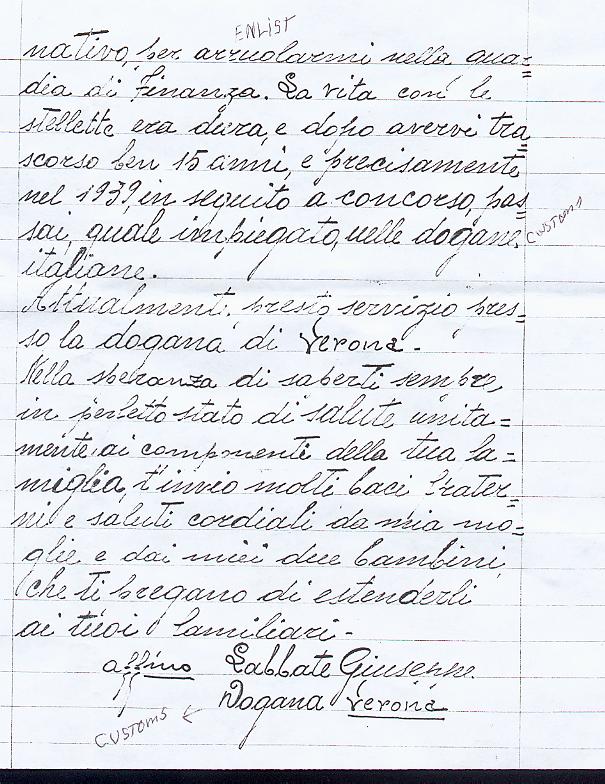 ENLIST
nativo, per arruolarmi nella gua=
dia di Finanza. La vita con le
stellette era dura, e dopo avervi tra
scorso ben 15 anni, e precisamente
nel 1939, in seguito a concorso, pas=
sai, quale impiegato, nelle dogane
CUSTOMS
italiane.
Attualmente, presto servizio pres=
so la dogana di Verona.
Nella speranza di saperti sempre,
in perfetto stato di salute unita=
mente, ai componenti della tua fa=
miglia, t'invio molti baci frater=
ni e saluti cordiali da mia mo=
glie e dai miei due bambini,
che ti pregano di estenderli
ai tuoi familiari -
affino Labbate Giuseppe
Dogana Verona
CUSTOMS